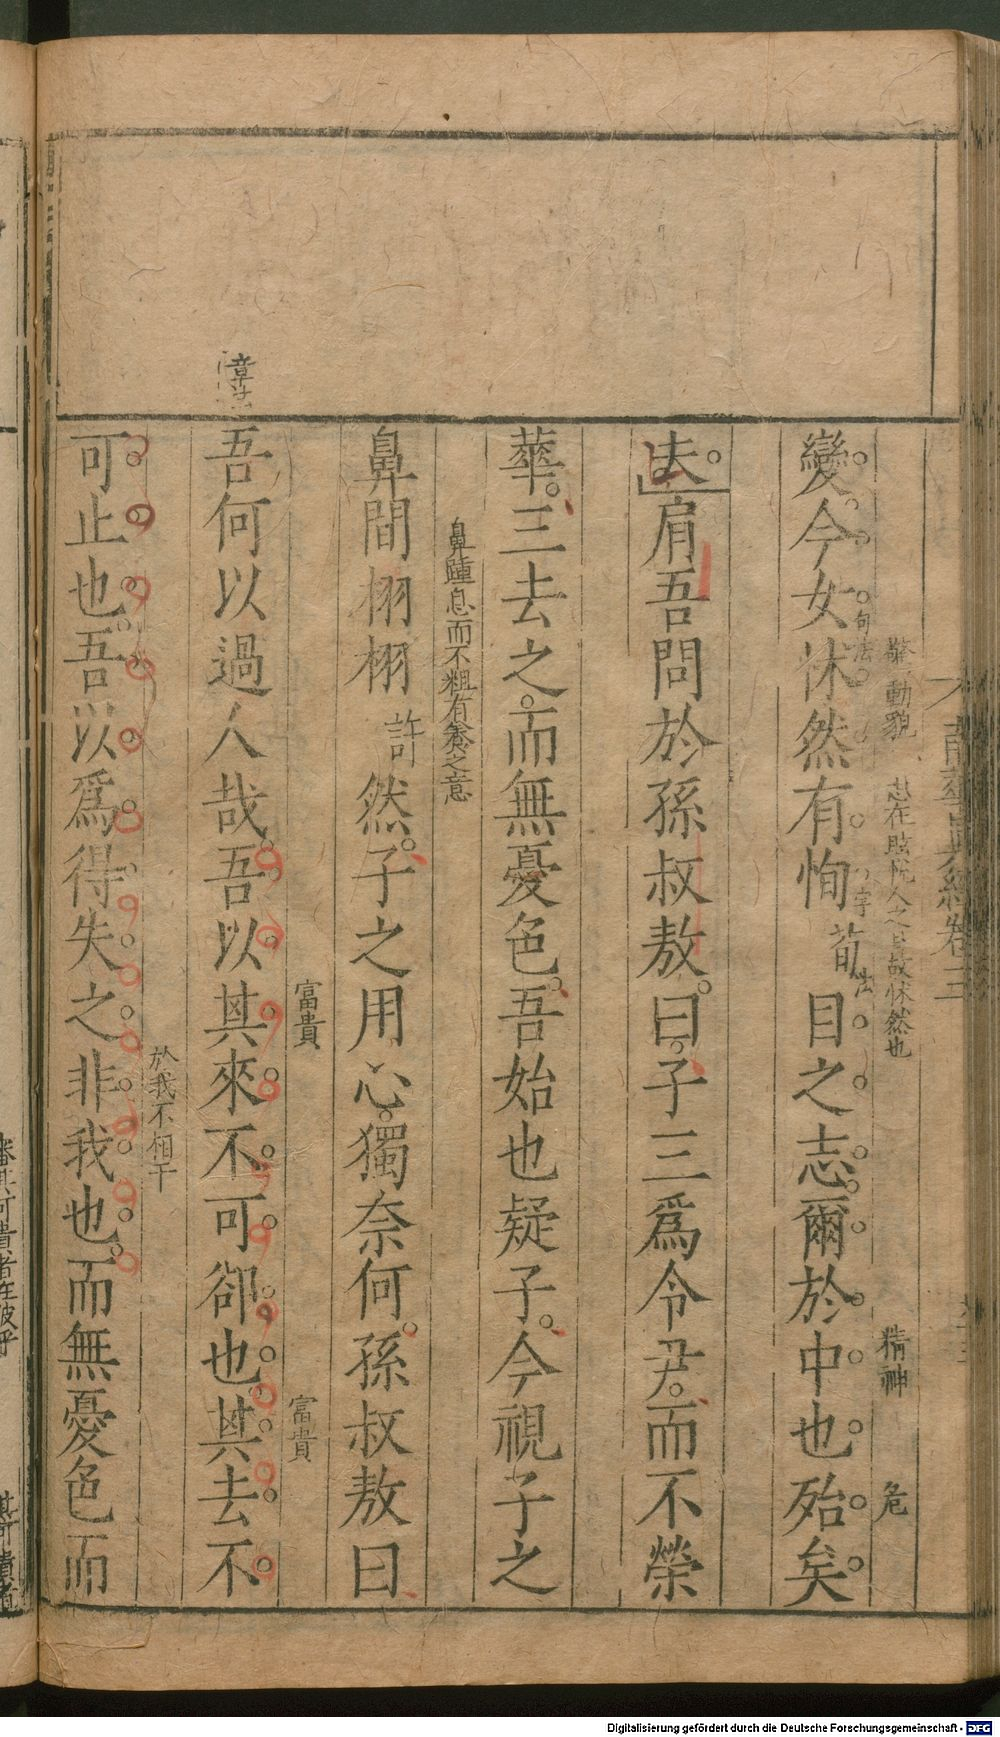 南華真經卷三
警動貌 志在眩悅人之目故怵然也 精神 危
句法 字法
變今女怵然有恂荀目之志爾於中也殆矣
夫肩吾問於孫叔敖曰子三爲令尹而不榮
華三去之而無憂色吾始也疑子今視子之
鼻踵息而不粗有養之意
鼻間栩栩許然子之用心獨奈何孫叔敖曰
富貴 富貴
章
吾何以過人哉吾以其來不可卻也其去不
於我不相干
可止也吾以爲得失之非我也而無憂色而
Digitalisierung gefördert durch die Deutsche Forschungsgemeinschaft - DFG